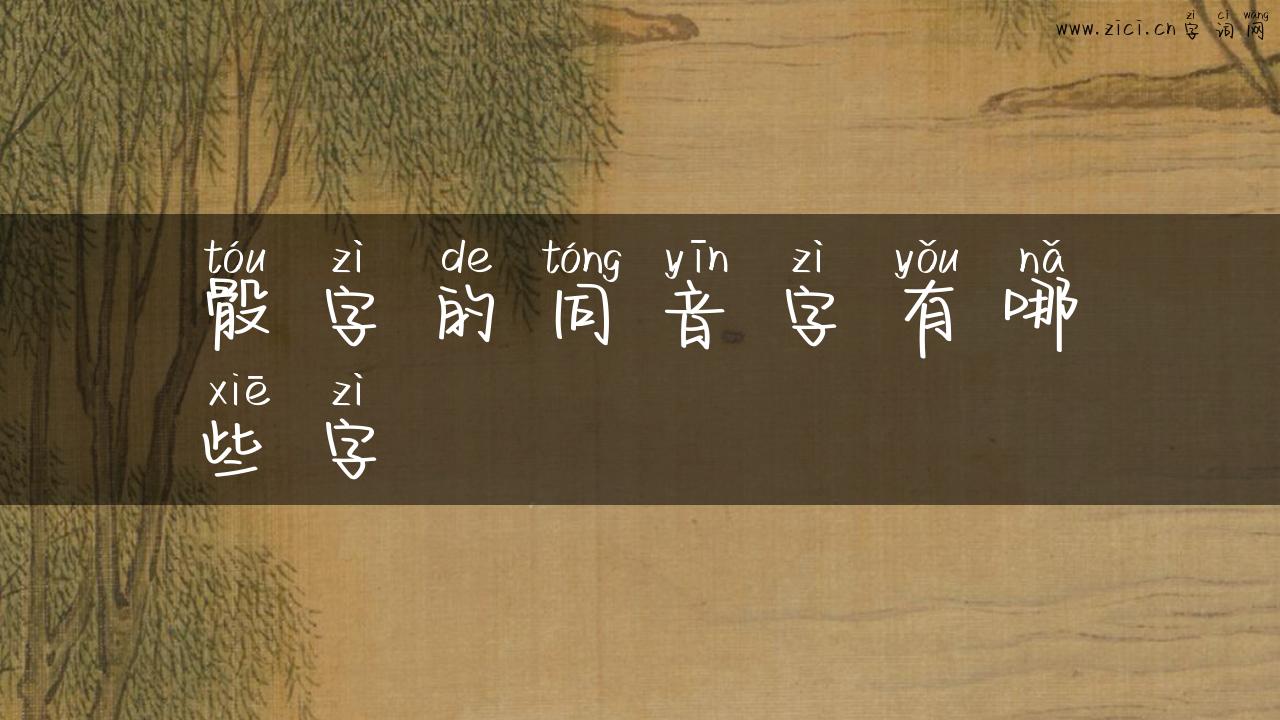 zì cí wǎng
www.zici.cn 字词网
tóu zì de tóng yīn zì yǒu nǎ
骰字的同音字有哪
xiē zì
些字